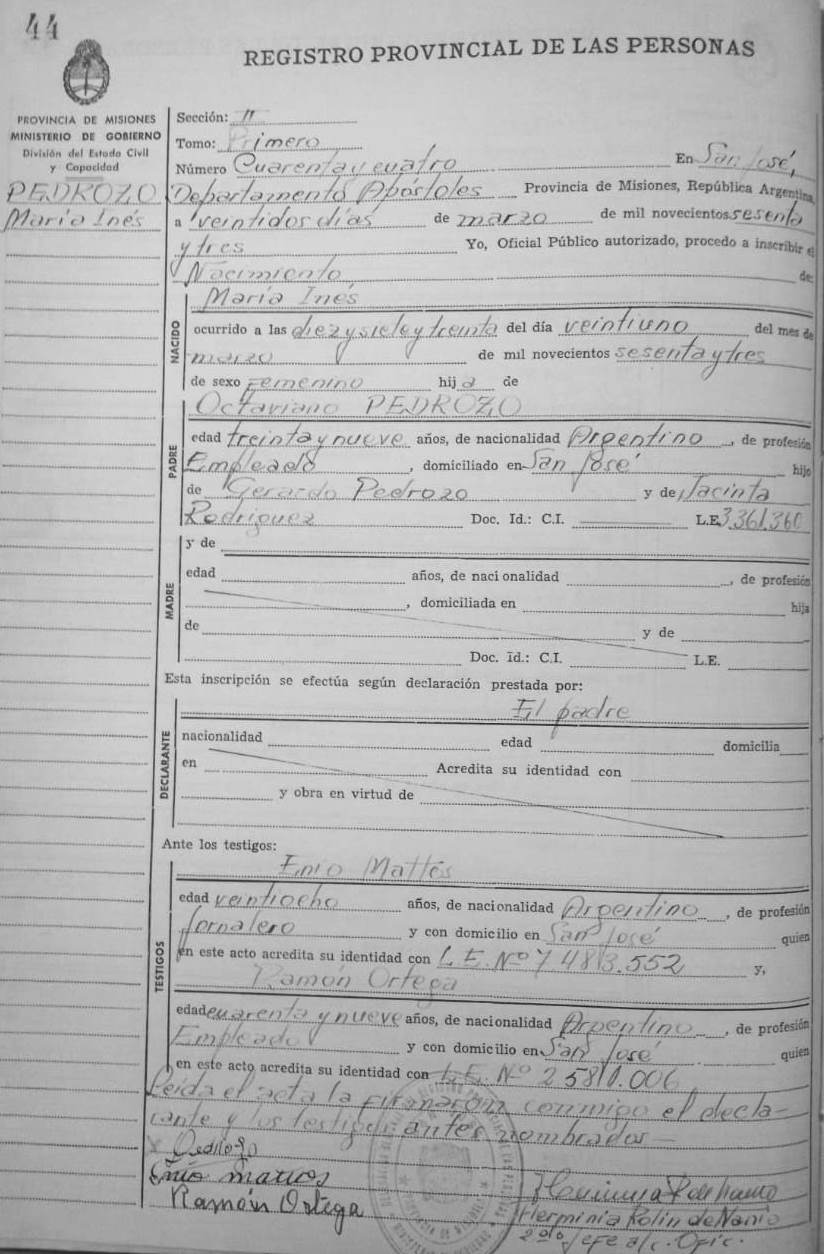 44
REGISTRO PROVINCIAL DE LAS PERSONAS
PROVINCIA DE MISIONES
MINISTERIO DE GOBIERNO
División del Estado Civil
y Capacidad
PEDROZO
María Inés
Sección: II
Tomo: Primero
Número Cuarenta y cuatro En San José,
Departamento Apóstoles Provincia de Misiones, República Argentina,
a veintidos días de marzo de mil novecientos sesenta
y tres Yo, Oficial Público autorizado, procedo a inscribir el
Nacimiento de:
NACIDO
María Inés
ocurrido a las diez y siete y treinta del día veintiuno del mes de
marzo de mil novecientos sesenta y tres
de sexo Femenino hija de
PADRE
Octaviano PEDROZO
edad treinta y nueve años, de nacionalidad Argentino, de profesión
Empleado, domiciliado en San José hijo
de Gerardo Pedrozo y de Jacinta
Rodriguez Doc. Id.: C.I. L.E. 3.361.360
MADRE
y de
edad años, de nacionalidad , de profesión
, domiciliada en hija
de y de
Doc. Id.: C.I. L.E.
Esta inscripción se efectúa según declaración prestada por:
DECLARANTE
El padre
nacionalidad edad domicilia
en Acredita su identidad con
y obra en virtud de
Ante los testigos:
TESTIGOS
Enio Mattos
edad veintiocho años, de nacionalidad Argentino, de profesión
Jornalero y con domicilio en San José quien
en este acto acredita su identidad con L.E. Nº 7.483.552 y,
Ramón Ortega
edad cuarenta y nueve años, de nacionalidad Argentino, de profesión
Empleado y con domicilio en San José quien
en este acto acredita su identidad con L.E. Nº 2.580.006
Leída el acta la firmaron conmigo el decla-
rante y los testigos antes nombrados
Pedrozo
Enio Mattos
Ramón Ortega
Herminia Rolin de Nanio
2do Jefe a/c. Ofic.